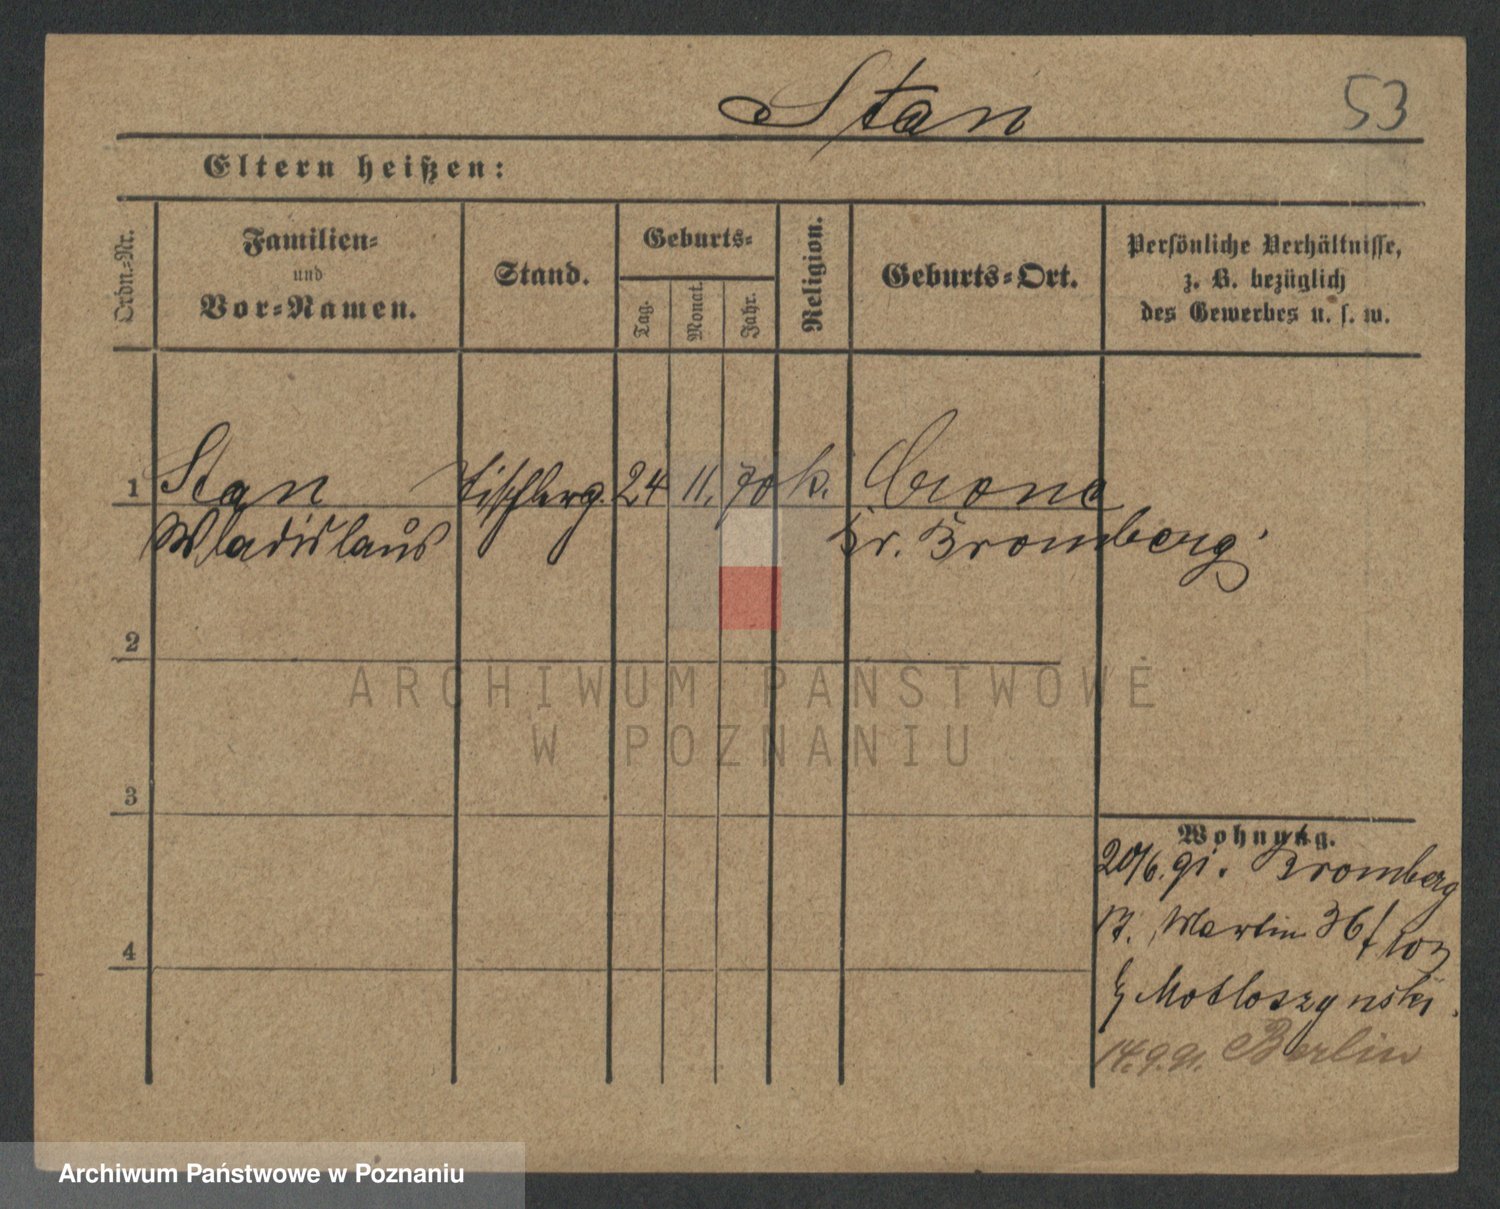 Stan
53
Eltern heißen:
Ordn.-Nr.
Familien-
und
Vor-Namen.
Stand.
Geburts-
Tag.
Monat.
Jahr.
Religion.
Geburts-Ort.
Persönliche Verhältnisse,
z. B. bezüglich
des Gewerbes u. s. w.
1 Stan Tischlerg. 24 11. 70 k. Crone
Wladislaus Kr. Bromberg
2
3
4
Wohnung.
20/6. 91. Bromberg
St. Martin 36
Motloszynski.
14.9.91. Berlin
ARCHIWUM PAŃSTWOWE
W POZNANIU
Archiwum Państwowe w Poznaniu